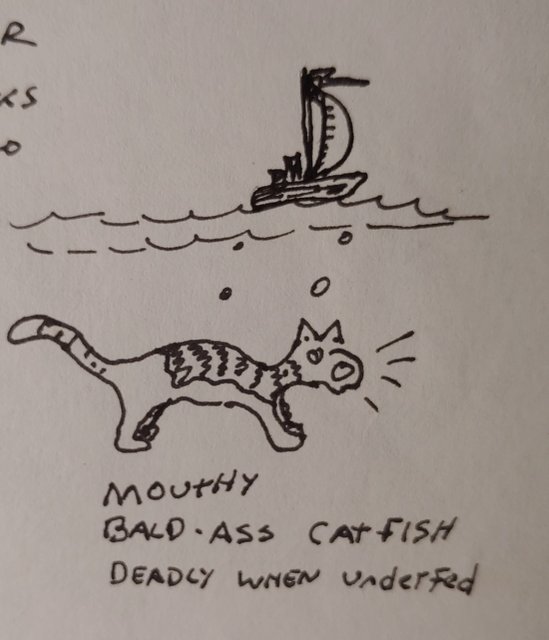 R
KS
O
MOUTHY
BALD-ASS CATFISH
DEADLY WHEN UNDERFED